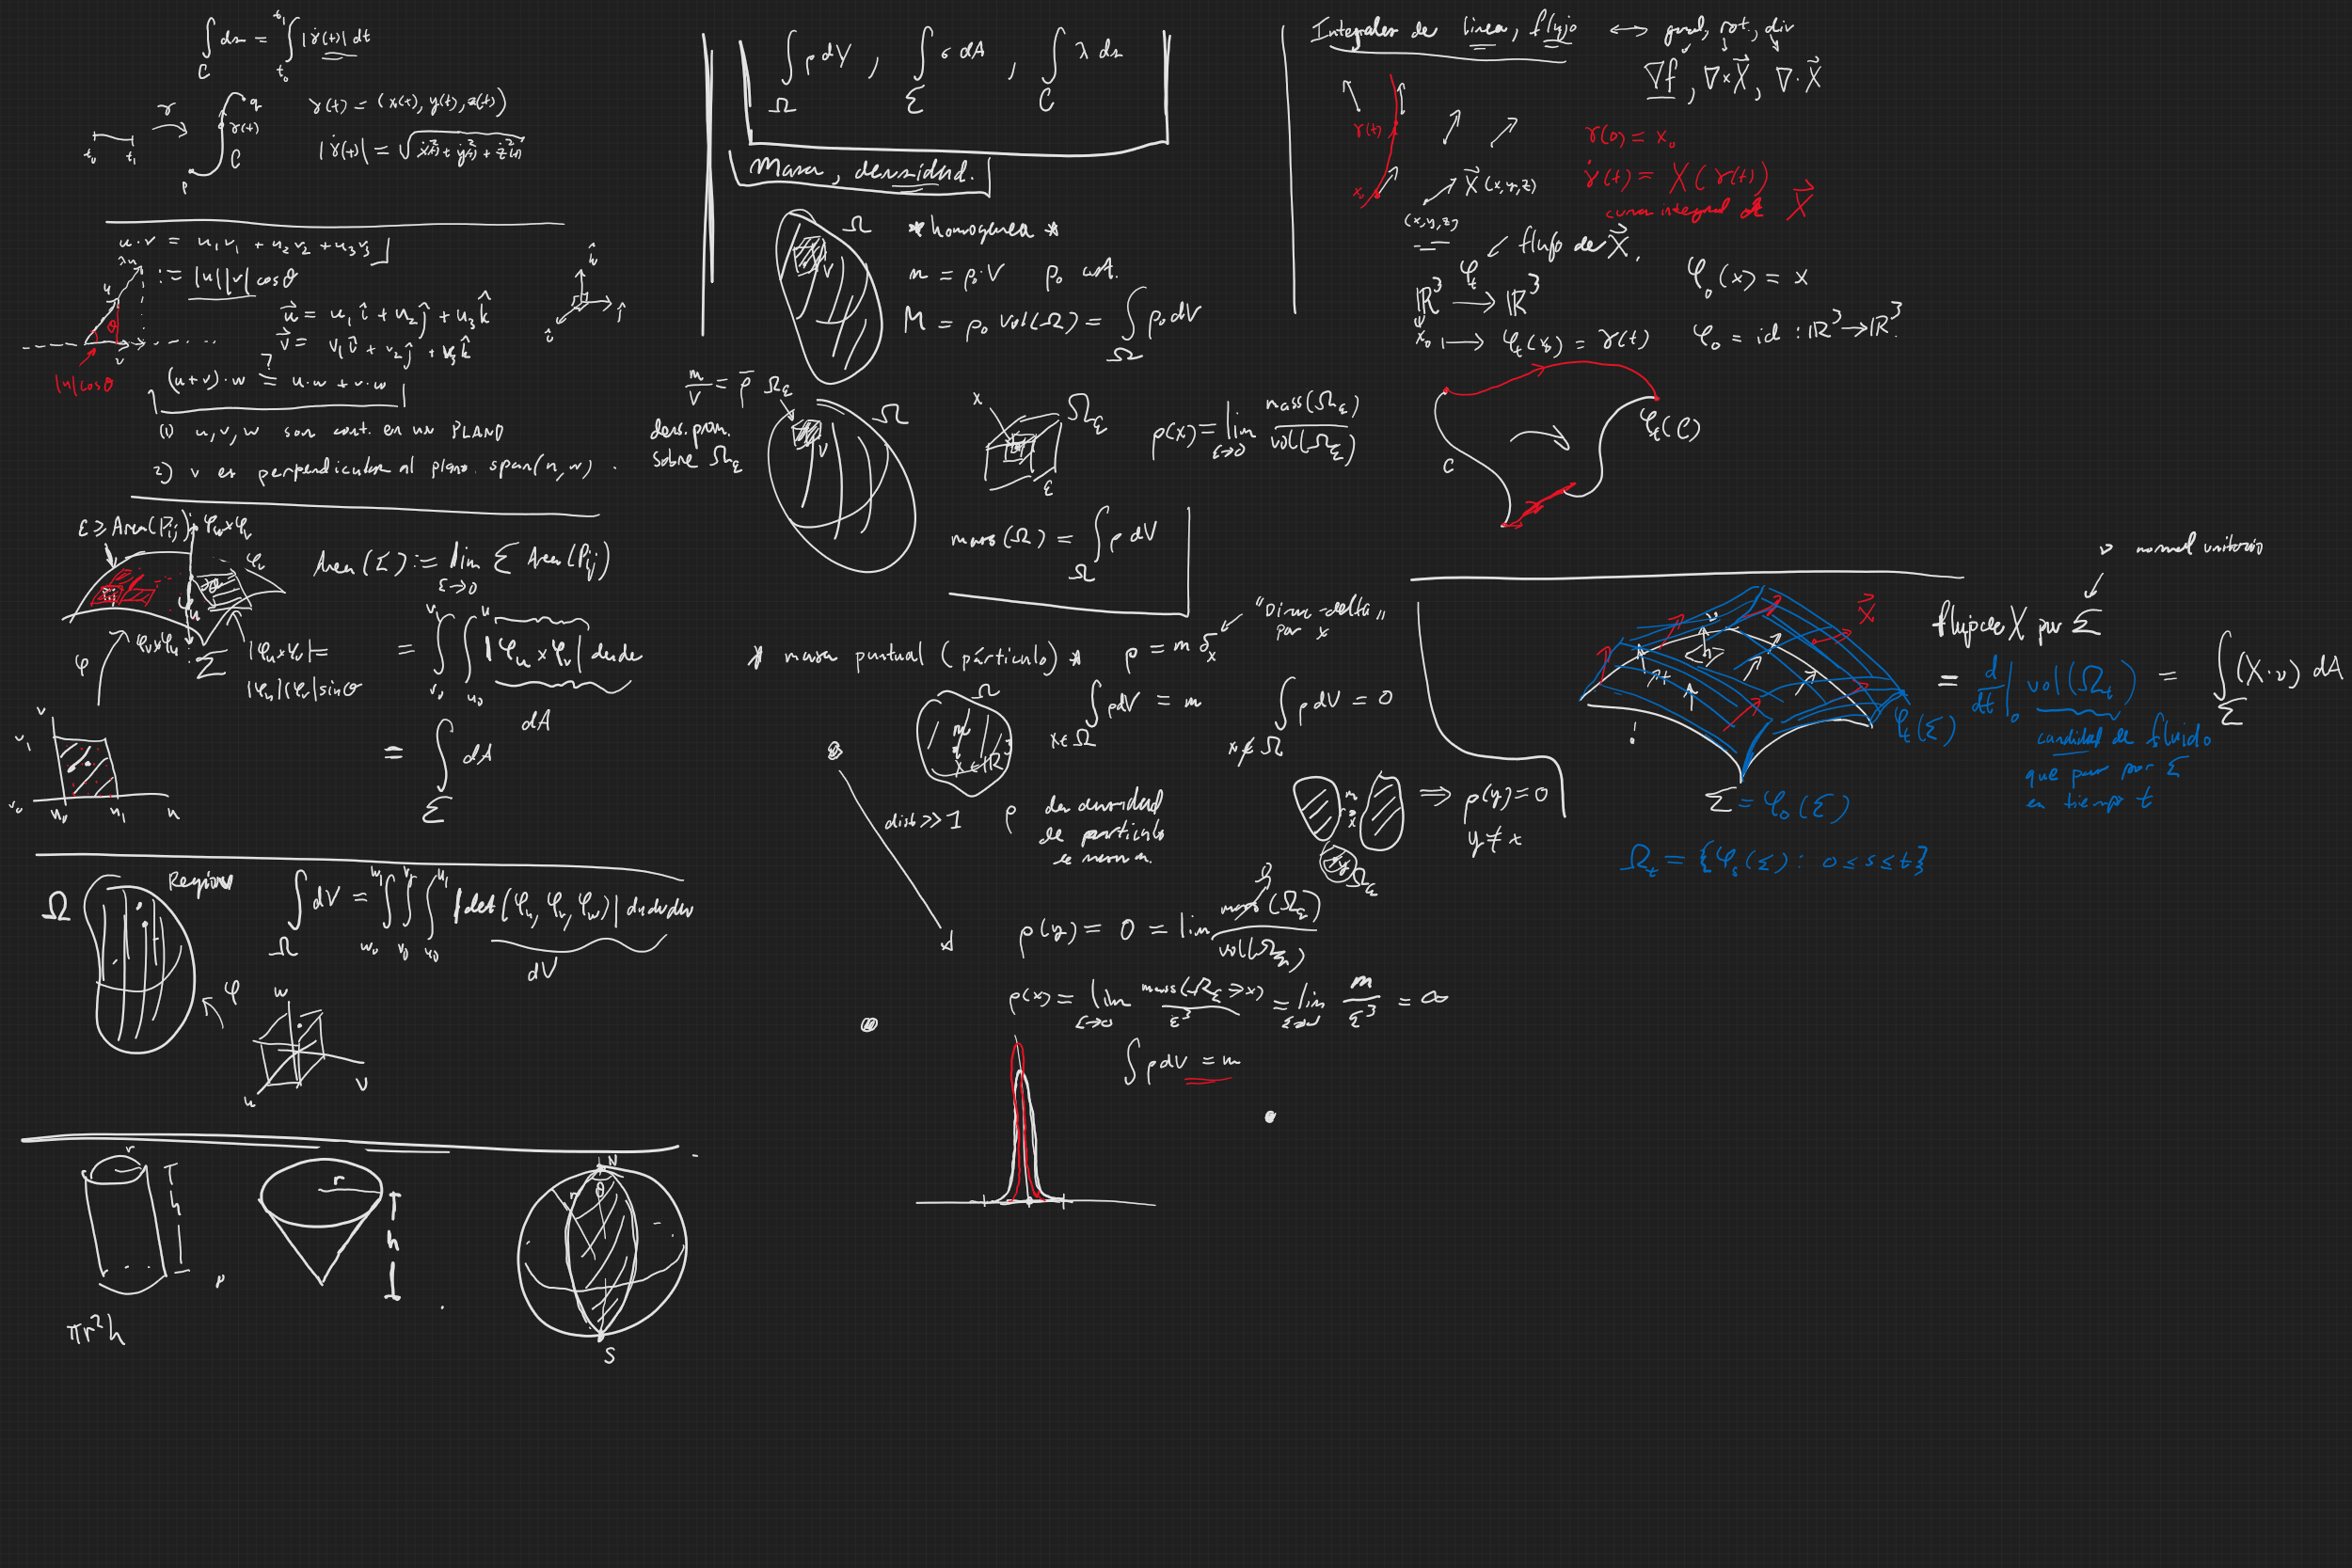 ∫_C ds = ∫_{t₀}^{t₁} |γ̇(t)| dt
γ
q
γ(t)
C
p
t₀ t₁
γ(t) = (x(t), y(t), z(t))
|γ̇(t)| = √(ẋ²(t) + ẏ²(t) + ż²(t))
u·v = u₁v₁ + u₂v₂ + u₃v₃
:= |u||v| cosθ
λu
u
θ
v
|u|cosθ
u⃗ = u₁î + u₂ĵ + u₃k̂
v⃗ = v₁î + v₂ĵ + v₃k̂
k̂
ĵ
î
(u+v)·w =? u·w + v·w
(1) u, v, w son cont. en un PLANO
2) v es perpendicular al plano span(u,w).
ε ≥ Area(P_ij)
φ_u×φ_v
φ_v
φ_u
φ_v×φ_u
Σ
φ
Area(Σ) := lim_{ε→0} Σ Area(P_ij)
= ∫_{v₀}^{v₁} ∫_{u₀}^{u₁} |φ_u × φ_v| du dv
dA
= ∫_Σ dA
|φ_u×φ_v| =
|φ_u||φ_v| sinθ
v
v₁
v₀
u₀ u₁ u
Ω
Region
∫_Ω dV = ∫_{w₀}^{w₁} ∫_{v₀}^{v₁} ∫_{u₀}^{u₁} |det(φ_u, φ_v, φ_w)| du dv dw
dV
φ
w
v
u
r
h
πr²h
r
h
N
r
θ
S
∫_Ω ρ dV , ∫_Σ σ dA , ∫_C λ ds
Masa, densidad.
Ω
* homogenea *
V
m = ρ₀·V ρ₀ const.
M = ρ₀ vol(Ω) = ∫_Ω ρ₀ dV
m/V = ρ̄ Ω_ε
dens. prom.
sobre Ω_ε
Ω
V
x
Ω_ε
ε
ρ(x) = lim_{ε→0} mass(Ω_ε)/vol(Ω_ε)
mass(Ω) = ∫_Ω ρ dV
* masa puntual (párticulo) * ρ = m δ_x
"Dirac-delta"
por x
Ω
m
∫_{x∈Ω} ρ dV = m
∫_{x∉Ω} ρ dV = 0
dist >> 1
ρ
de particulo
de masa m.
m
x
⟹ ρ(y) = 0
y ≠ x
y
Ω_ε
ρ(y) = 0 = lim mass(Ω_ε)/vol(Ω_ε)
ρ(x) = lim_{ε→0} mass(Ω_ε∋x)/ε³ = lim_{ε→0} m/ε³ = ∞
∫ρ dV = m
Integrales de linea, flujo ⟷ grad, rot., div
∇f, ∇×X⃗, ∇·X⃗
γ(t)
x₀
X⃗(x,y,z)
(x,y,z)
γ(0) = x₀
γ̇(t) = X(γ(t))
curva integral de X⃗
flujo de X⃗.
ℝ³ →^{φ_t} ℝ³
φ₀(x) = x
x₀ ⟼ φ_t(x₀) = γ(t)
φ₀ = id : ℝ³→ℝ³
C
φ_t(C)
ν normal unitario
X⃗
ν
flujo de X por Σ
= d/dt|₀ vol(Ω_t) = ∫_Σ (X·ν) dA
cantidad de fluido
que pasa por Σ
en tiempo t
φ_t(Σ)
Σ = φ₀(Σ)
Ω_t = {φ_s(Σ) : 0 ≤ s ≤ t}